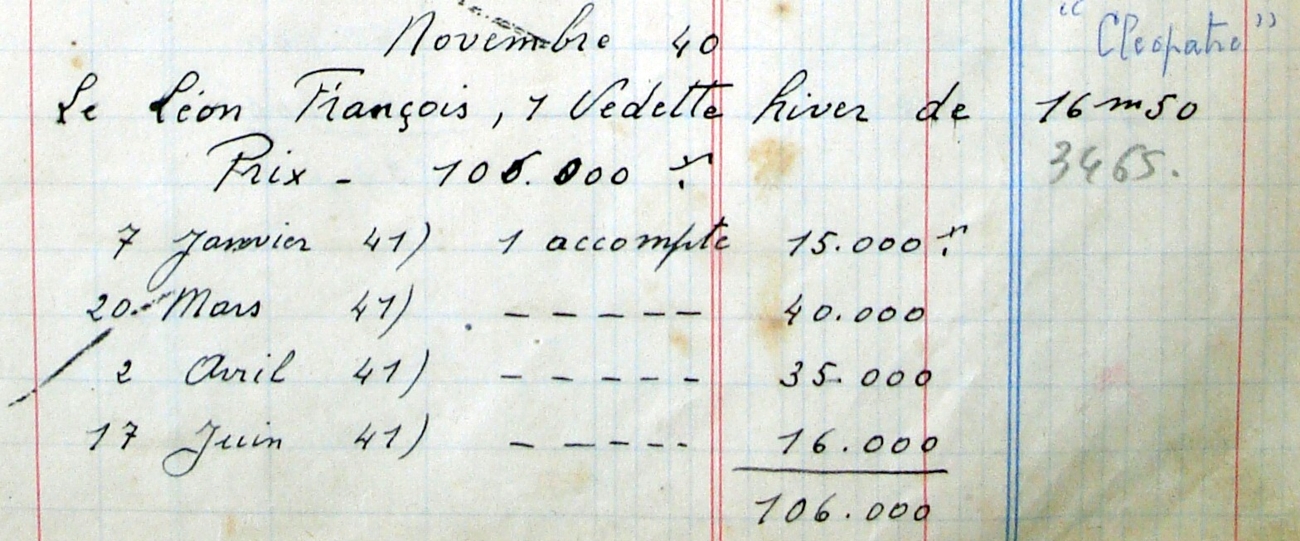 Novembre 40 "Cleopatre"
Le Léon François, 1 Vedette hiver de 16 m 50
Prix - 106.000 fr 3465.
7 Janvier 41) 1 accompte 15.000 fr
20 Mars 41) - - - - - 40.000
2 Avril 41) - - - - - 35.000
17 Juin 41) - - - - - 16.000
106.000